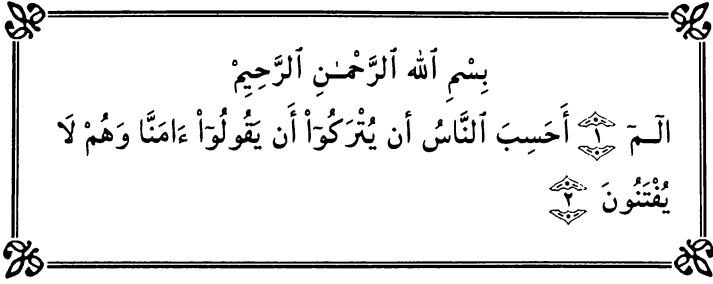 بِسْمِ ٱللهِ ٱلرَّحْمَـٰنِ ٱلرَّحِيمْ
الـمٓ ١ أَحَسِبَ ٱلنَّاسُ أن يُتْرَكُوٓاْ أَن يَقُولُوٓاْ ءَامَنَّا وَهُمْ لَا
يُفْتَنُونَ ٢